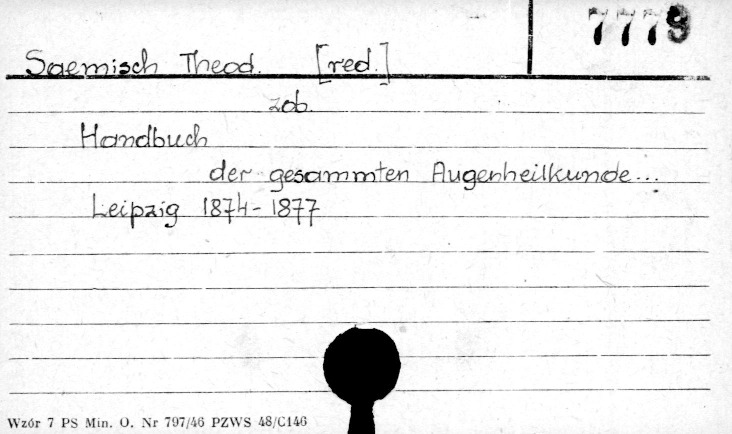 7779
Saemisch Theod. [red.]
zob.
Handbuch
der gesammten Augenheilkunde...
Leipzig 1874-1877
Wzór 7 PS Min. O. Nr 797/46 PZWS 48/C146